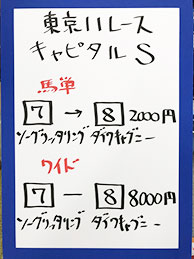 東京11レース
キャピタルS
馬単
7 → 8 2000円
ソーグリッタリング ダイワキャグニー
ワイド
7 ー 8 8000円
ソーグリッタリング ダイワキャグニー